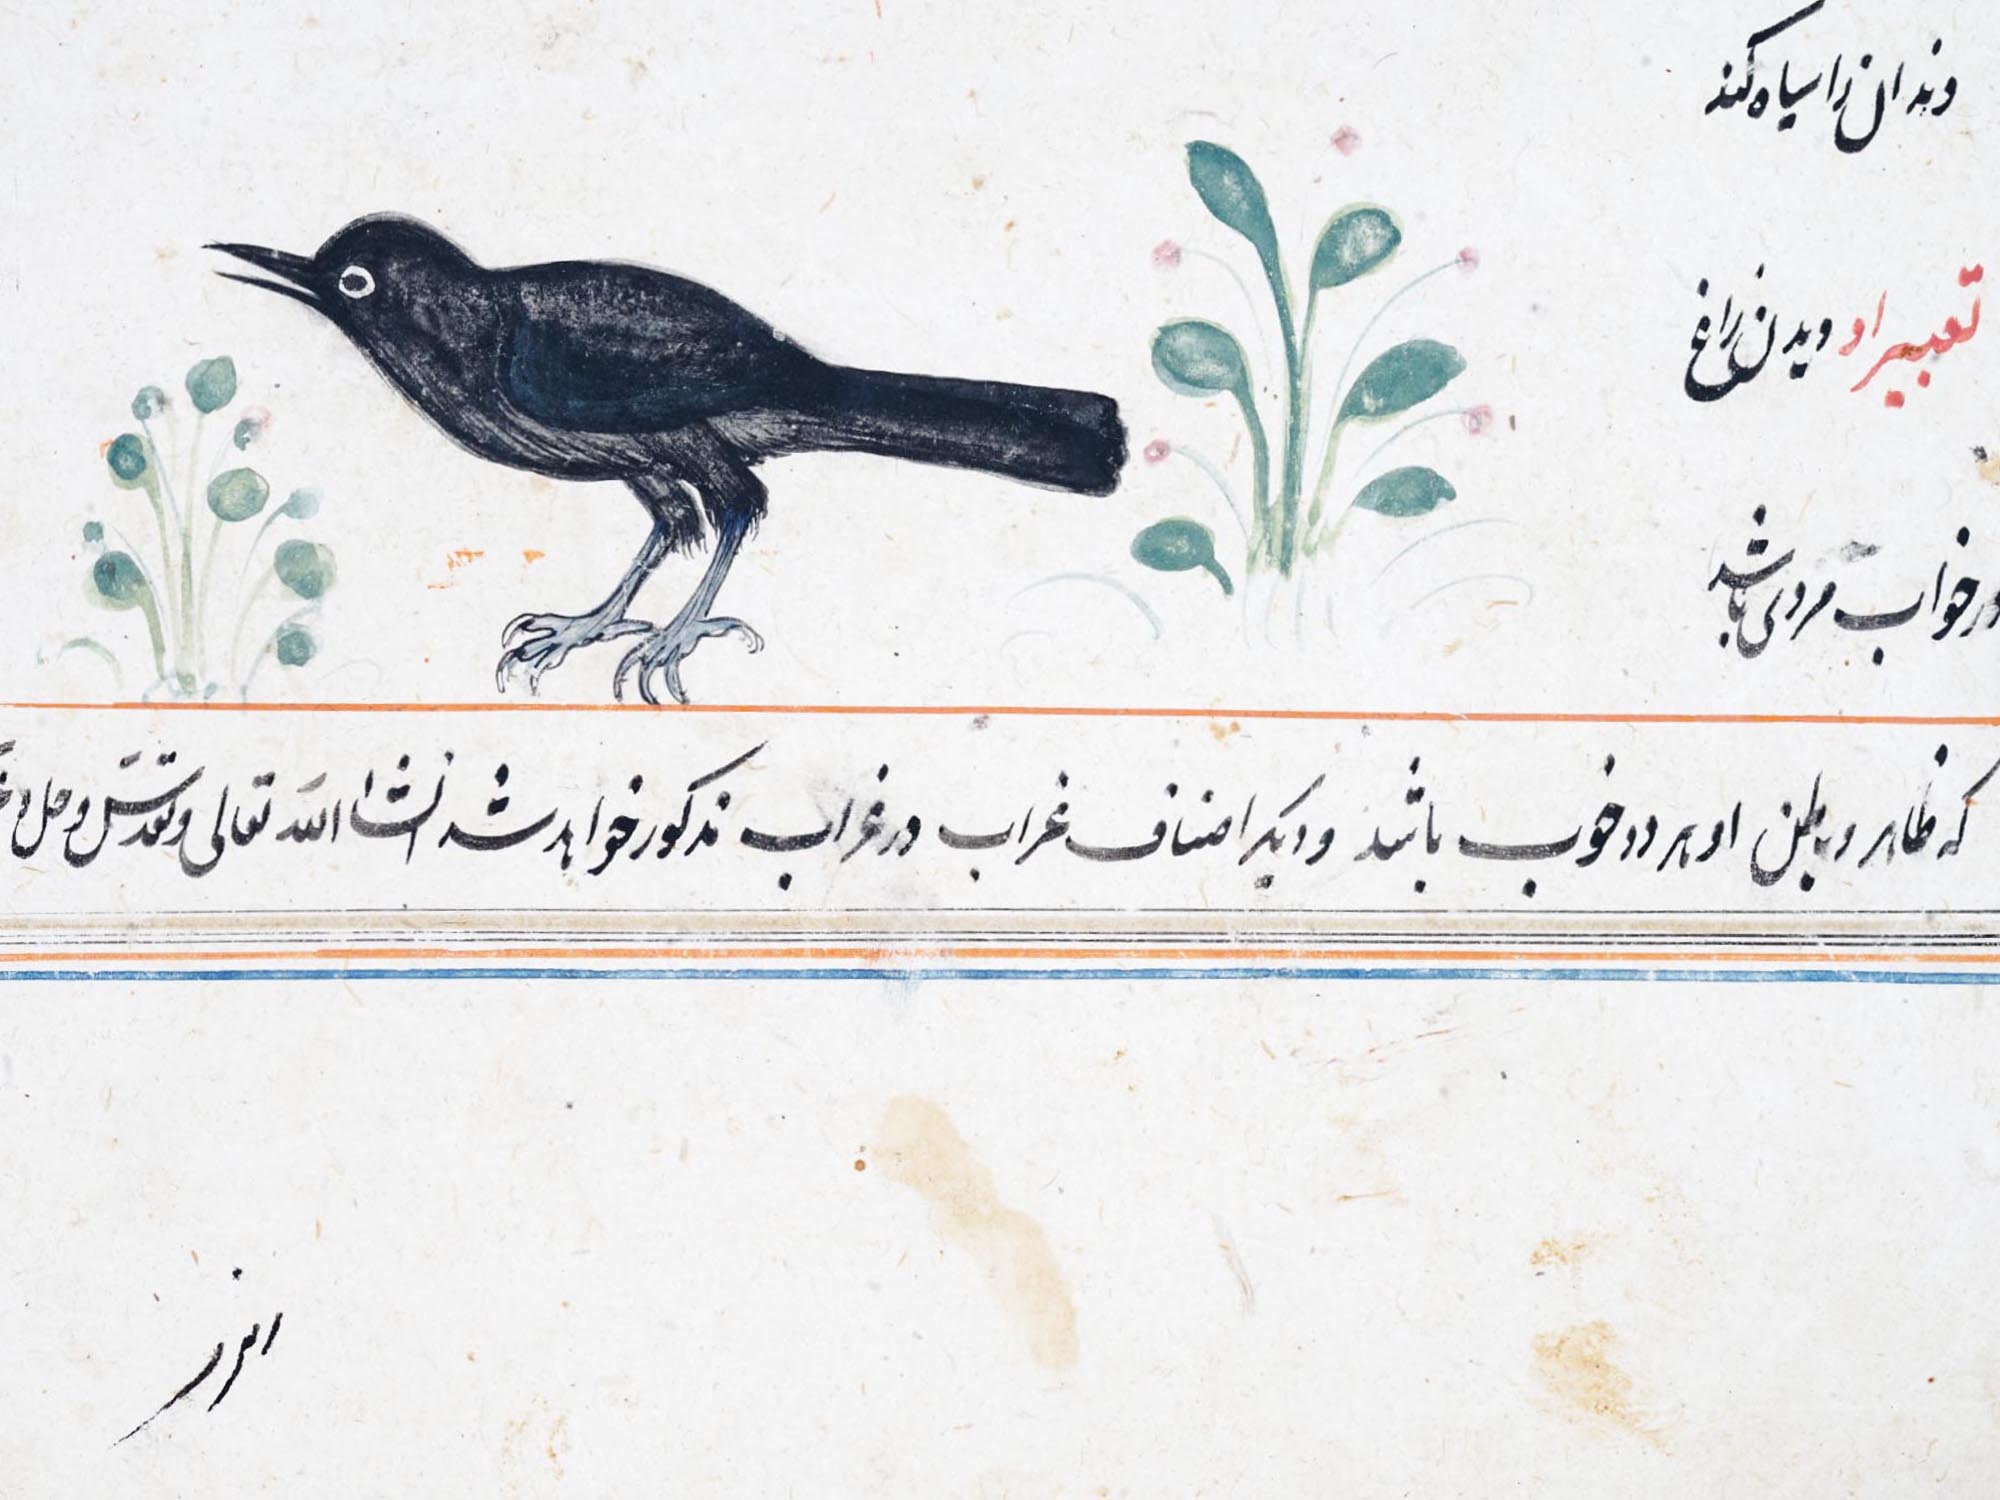 دندان را سیاه کند
تعبیر او دیدن زاغ
در خواب مردی باشد
که ظاهر و باطن او هر دو خوب باشد و دیکر اصناف غراب در غراب مذکور خواهد شد انشا الله تعالی وتقدس وجل وع